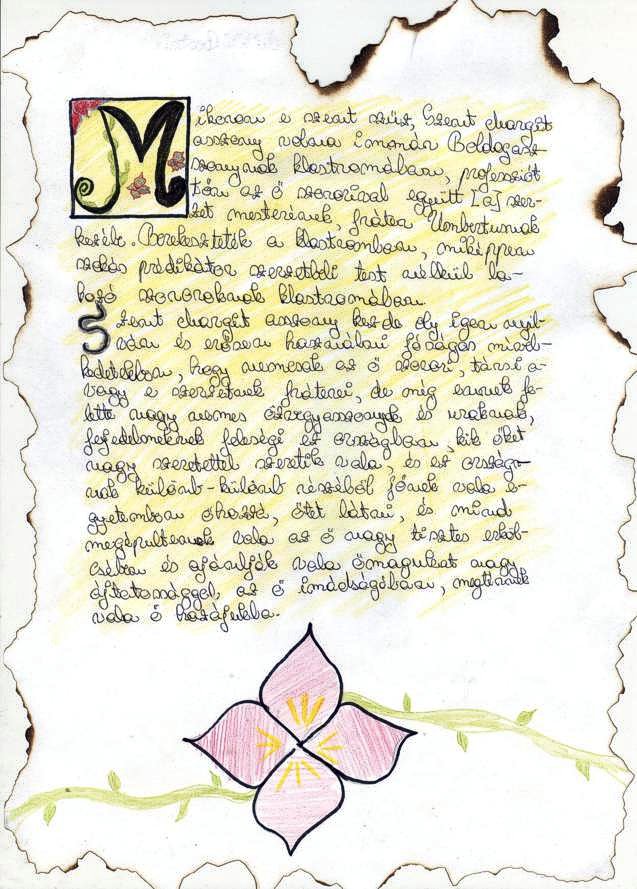 Mikoron e szent szűz, Szent Margit
asszony volna immár Boldogasz-
szonynak klastromában, professiót
tőn az ő szororival együtt [a] szer-
zet mesterének, fráter Umbertusnak
kezébe. Berekeszteték a klastromban, miképpen
szokás prédikátor szerzetbeli test nélkül la-
kozó szororoknak klastromában.
Szent Margit asszony kezde oly igen nyil-
ván és erősen használni jóságos mível-
kedetekben, hogy nemcsak az ő szorori, társi a-
vagy e szerzetnek fráteri, de még ennek fe-
lette nagy nemes özvegyasszonyok és uraknak,
fejedelmeknek feleségi ez országban, kik őket
nagy szeretettel szeretik vala, és ez ország-
nak különb-különb részéből jőnek vala e-
gyetemben őhozzá, őtet látni, és mind
megépültenek vala az ő nagy tisztes erköl-
csében és ajánlják vala őmagukat nagy
ájtatossággal, az ő imádságában, megtérnek
vala ő hazájukba.